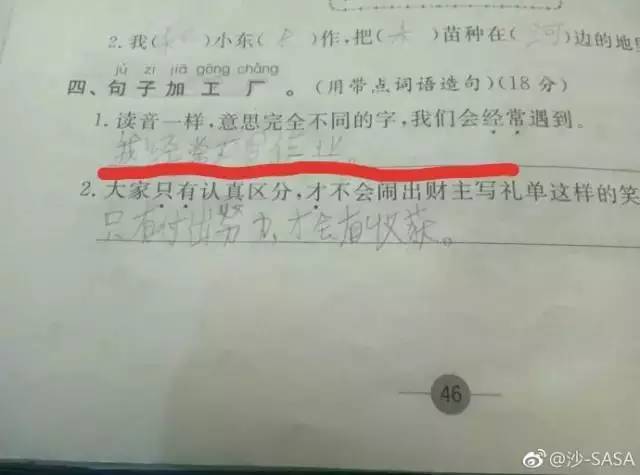 2. 我( )小东( )作,把( )苗种在(河)边的地里
jù zi jiā gōng chǎng
四、句子加工厂。(用带点词语造句)(18分)
1. 读音一样,意思完全不同的字,我们会经常遇到。
我经常不写作业。
2. 大家只有认真区分,才不会闹出财主写礼单这样的笑
只有付出努力,才会有收获。
46
@沙-SASA